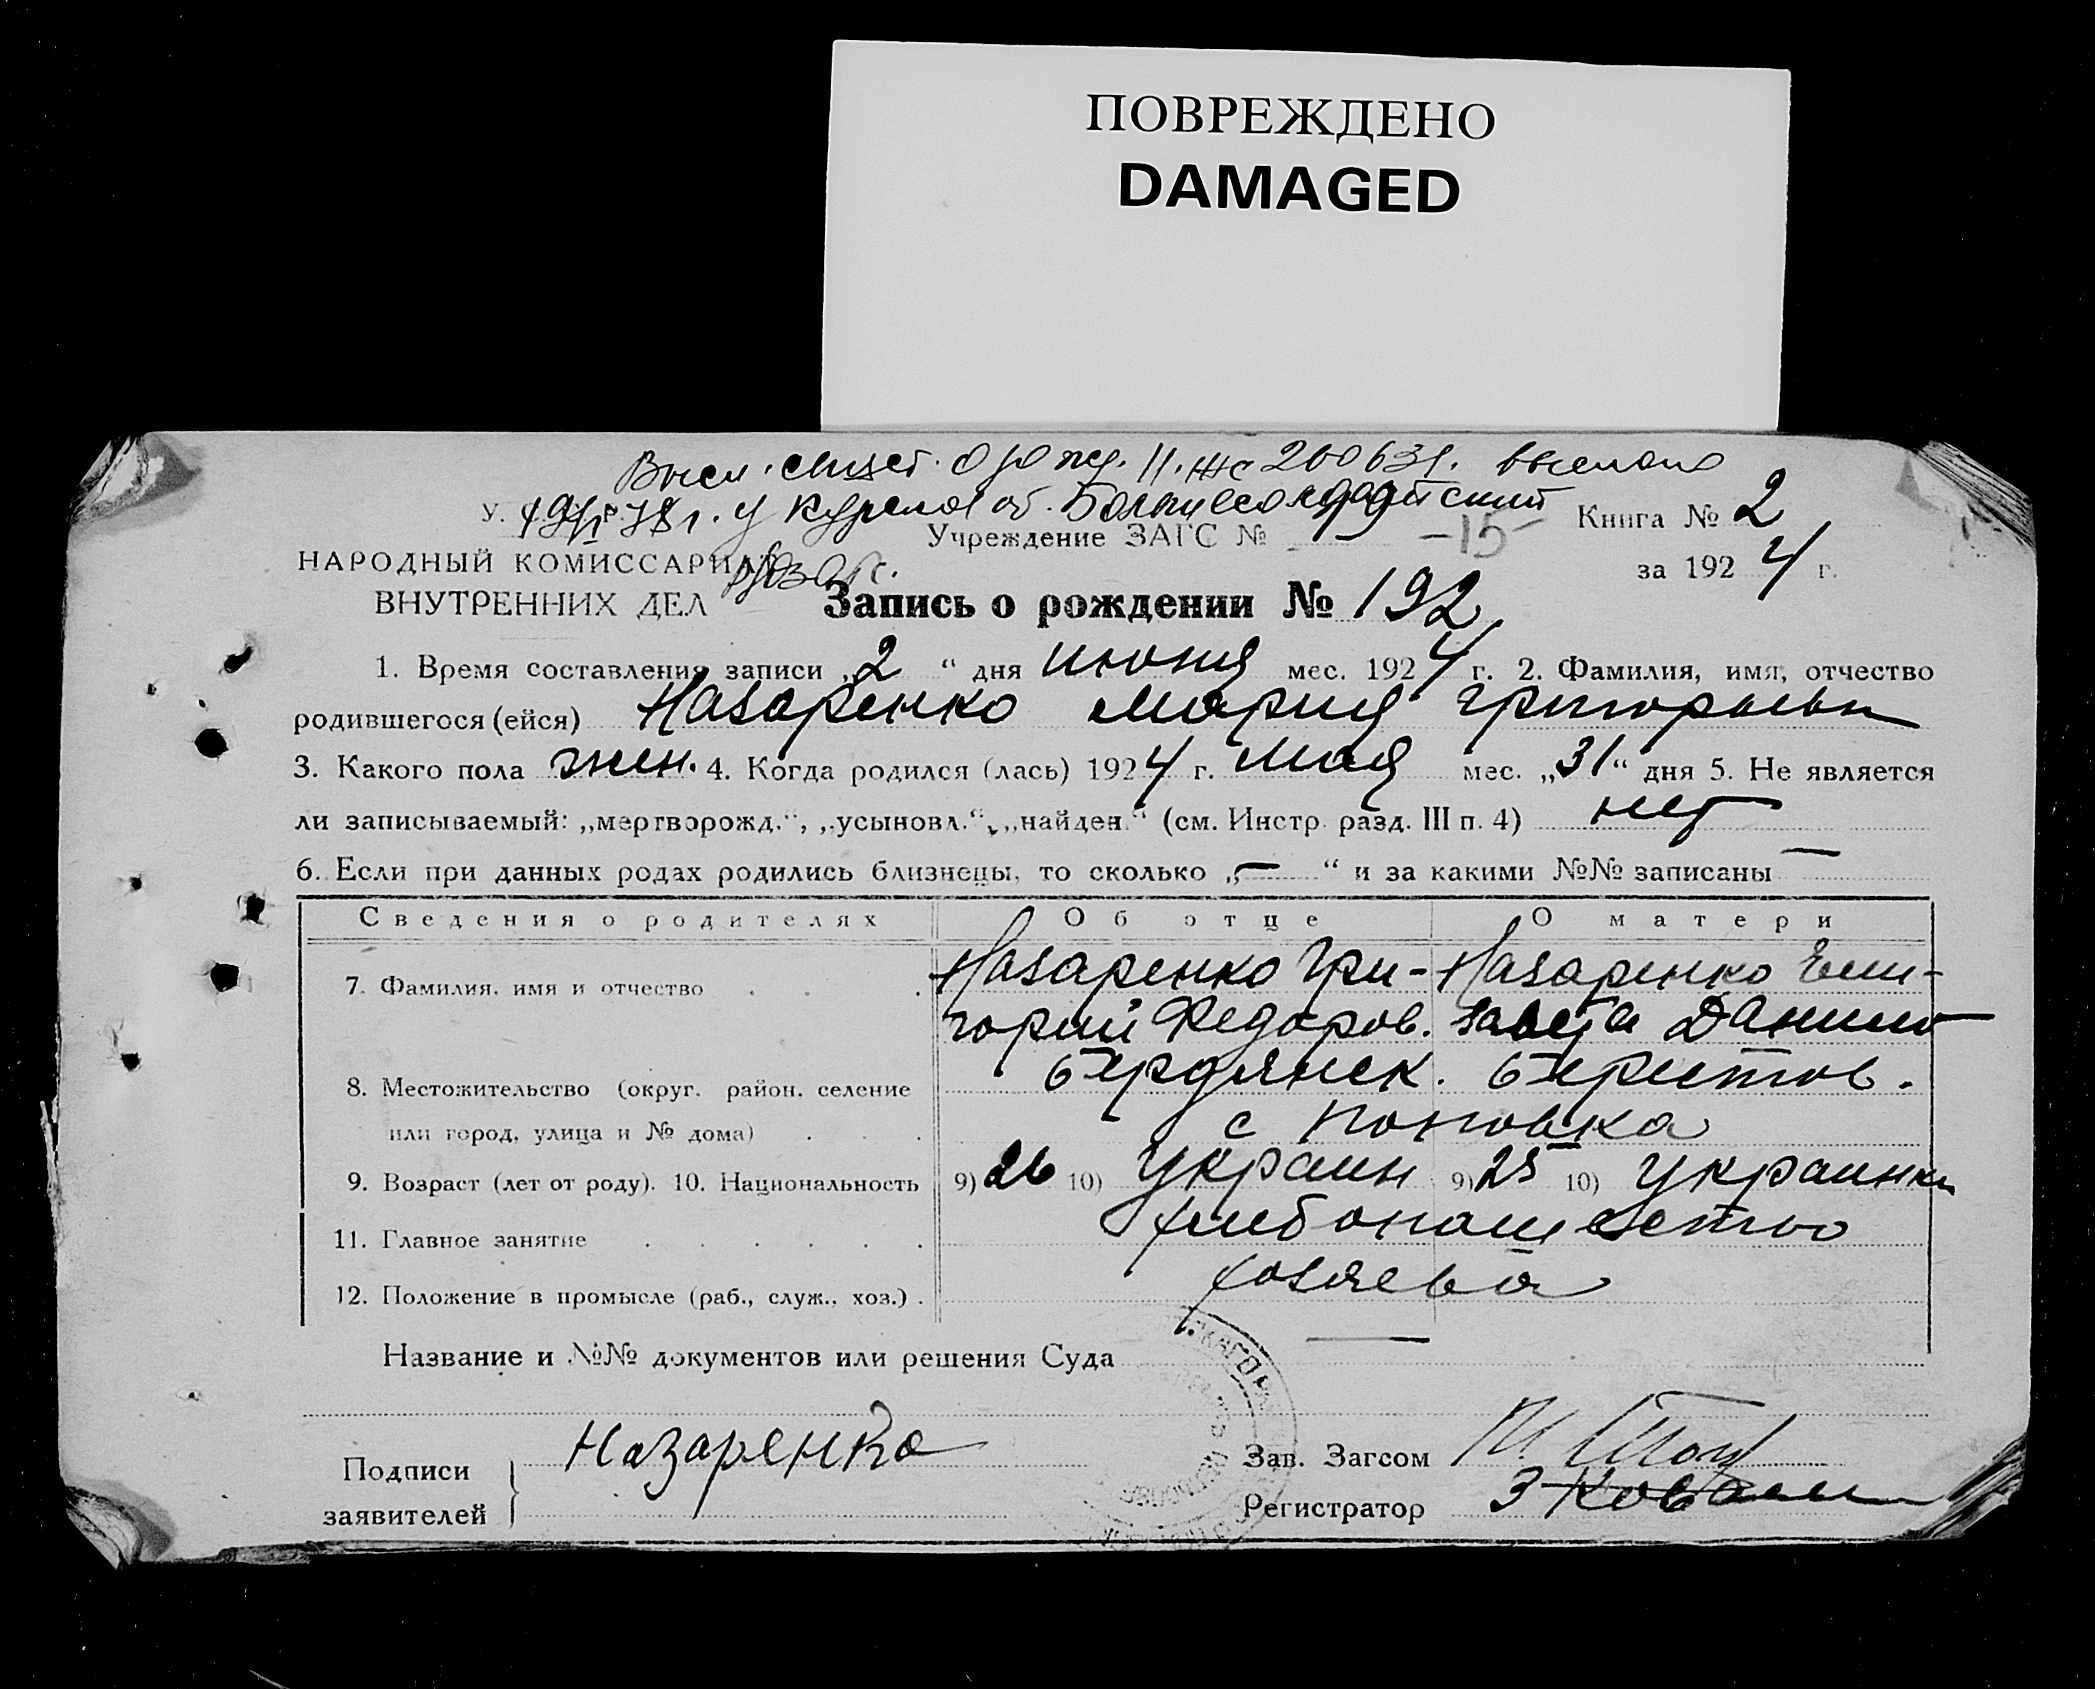 ПОВРЕЖДЕНО
DAMAGED
свидет. о рожд. II. 200631.
У. С. С. Р. Книга № 2
Учреждение ЗАГС № -15-
НАРОДНЫЙ КОМИССАРИАТ за 1924 г.
ВНУТРЕННИХ ДЕЛ
Запись о рождении № 192
1. Время составления записи „2“ дня июня мес. 1924 г. 2. Фамилия, имя, отчество
родившегося (ейся) Назаренко Мария
3. Какого пола жен. 4. Когда родился (лась) 1924 г. мая мес. „31“ дня 5. Не является
ли записываемый: „мертворожд.“, „усыновл.“, „найден.“ (см. Инстр. разд. III п. 4) нет
6. Если при данных родах родились близнецы, то сколько „—“ и за какими №№ записаны —
Сведения о родителях Об отце О матери
7. Фамилия, имя и отчество Назаренко Гри- Назаренко Ели-
горий Федоров. завета Данило
8. Местожительство (округ, район, селение Бердянск. Берестов.
или город, улица и № дома) с Поповка
9. Возраст (лет от роду). 10. Национальность 9) 26 10) Украин 9) 25 10) Украинка
11. Главное занятие хлебопашество
12. Положение в промысле (раб., служ., хоз.) хозяева
Название и №№ документов или решения Суда —
Подписи заявителей Назаренко
Зав. Загсом
Регистратор